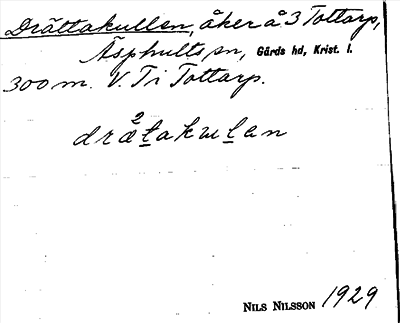 Drättakullen, åker å 3 Tottarp,
Äsphults sn, Gärds hd, Krist. l.
300 m. V. T i Tottarp.
2
dräṯakuḻen
NILS NILSSON 1929